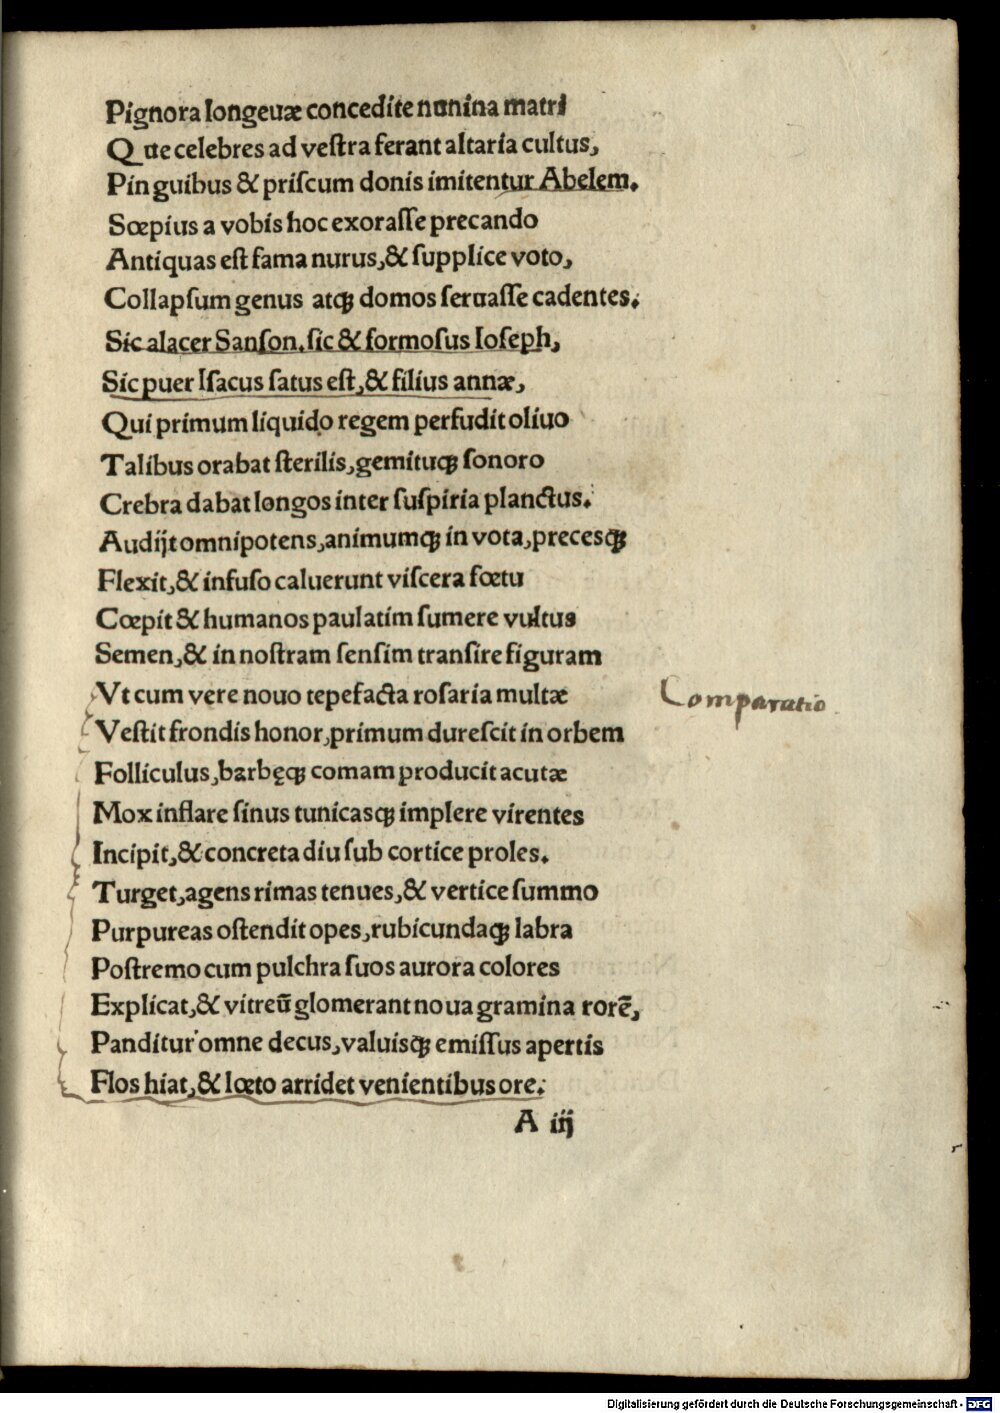 Pignora longeuæ concedite numina matri
Quæ celebres ad veſtra ferant altaria cultus,
Pinguibus & priſcum donis imitentur Abelem.
Sœpius a vobis hoc exoraſſe precando
Antiquas eſt fama nurus,& ſupplice voto,
Collapſum genus atqꝫ domos ſeruaſſe cadentes.
Sic alacer Sanſon.ſic & formoſus Ioſeph,
Sic puer Iſacus ſatus eſt,& filius annæ,
Qui primum liquido regem perfudit oliuo
Talibus orabat ſterilis,gemituqꝫ ſonoro
Crebra dabat longos inter ſuſpiria planctus.
Audijt omnipotens,animumqꝫ in vota,precesqꝫ
Flexit,& infuſo caluerunt viſcera fœtu
Cœpit & humanos paulatim ſumere vultus
Semen,& in noſtram ſenſim tranſire figuram
Vt cum vere nouo tepefacta roſaria multæ
Comparatio
Veſtit frondis honor,primum dureſcit in orbem
Folliculus,barbęqꝫ comam producit acutæ
Mox inflare ſinus tunicasqꝫ implere virentes
Incipit,& concreta diu ſub cortice proles.
Turget,agens rimas tenues,& vertice ſummo
Purpureas oſtendit opes,rubicundaqꝫ labra
Poſtremo cum pulchra ſuos aurora colores
Explicat,& vitreū glomerant noua gramina rorē,
Panditur omne decus,valuisqꝫ emiſſus apertis
Flos hiat,& lœto arridet venientibus ore.
A iij
Digitalisierung gefördert durch die Deutsche Forschungsgemeinschaft - DFG